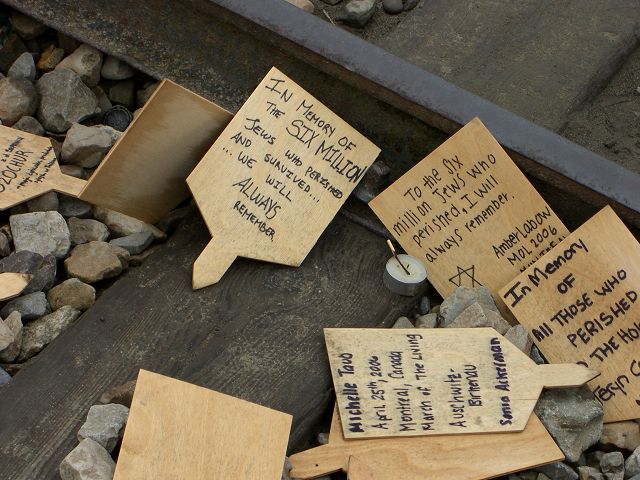 IN MEMORY OF
THE SIX MILLION
JEWS WHO PERISHED
AND SURVIVED...
... WE WILL
ALWAYS
REMEMBER
To the Six
million Jews who
perished, I will
always remember.
Amber Labow
MOL 2006
In Memory
OF
All THOSE WHO
PERISHED
THE HO
Michelle Tauo
April 25th, 2006
Montreal, Canada
March of The Living
Auschwitz-
Birkenau
Sonia Ackerman